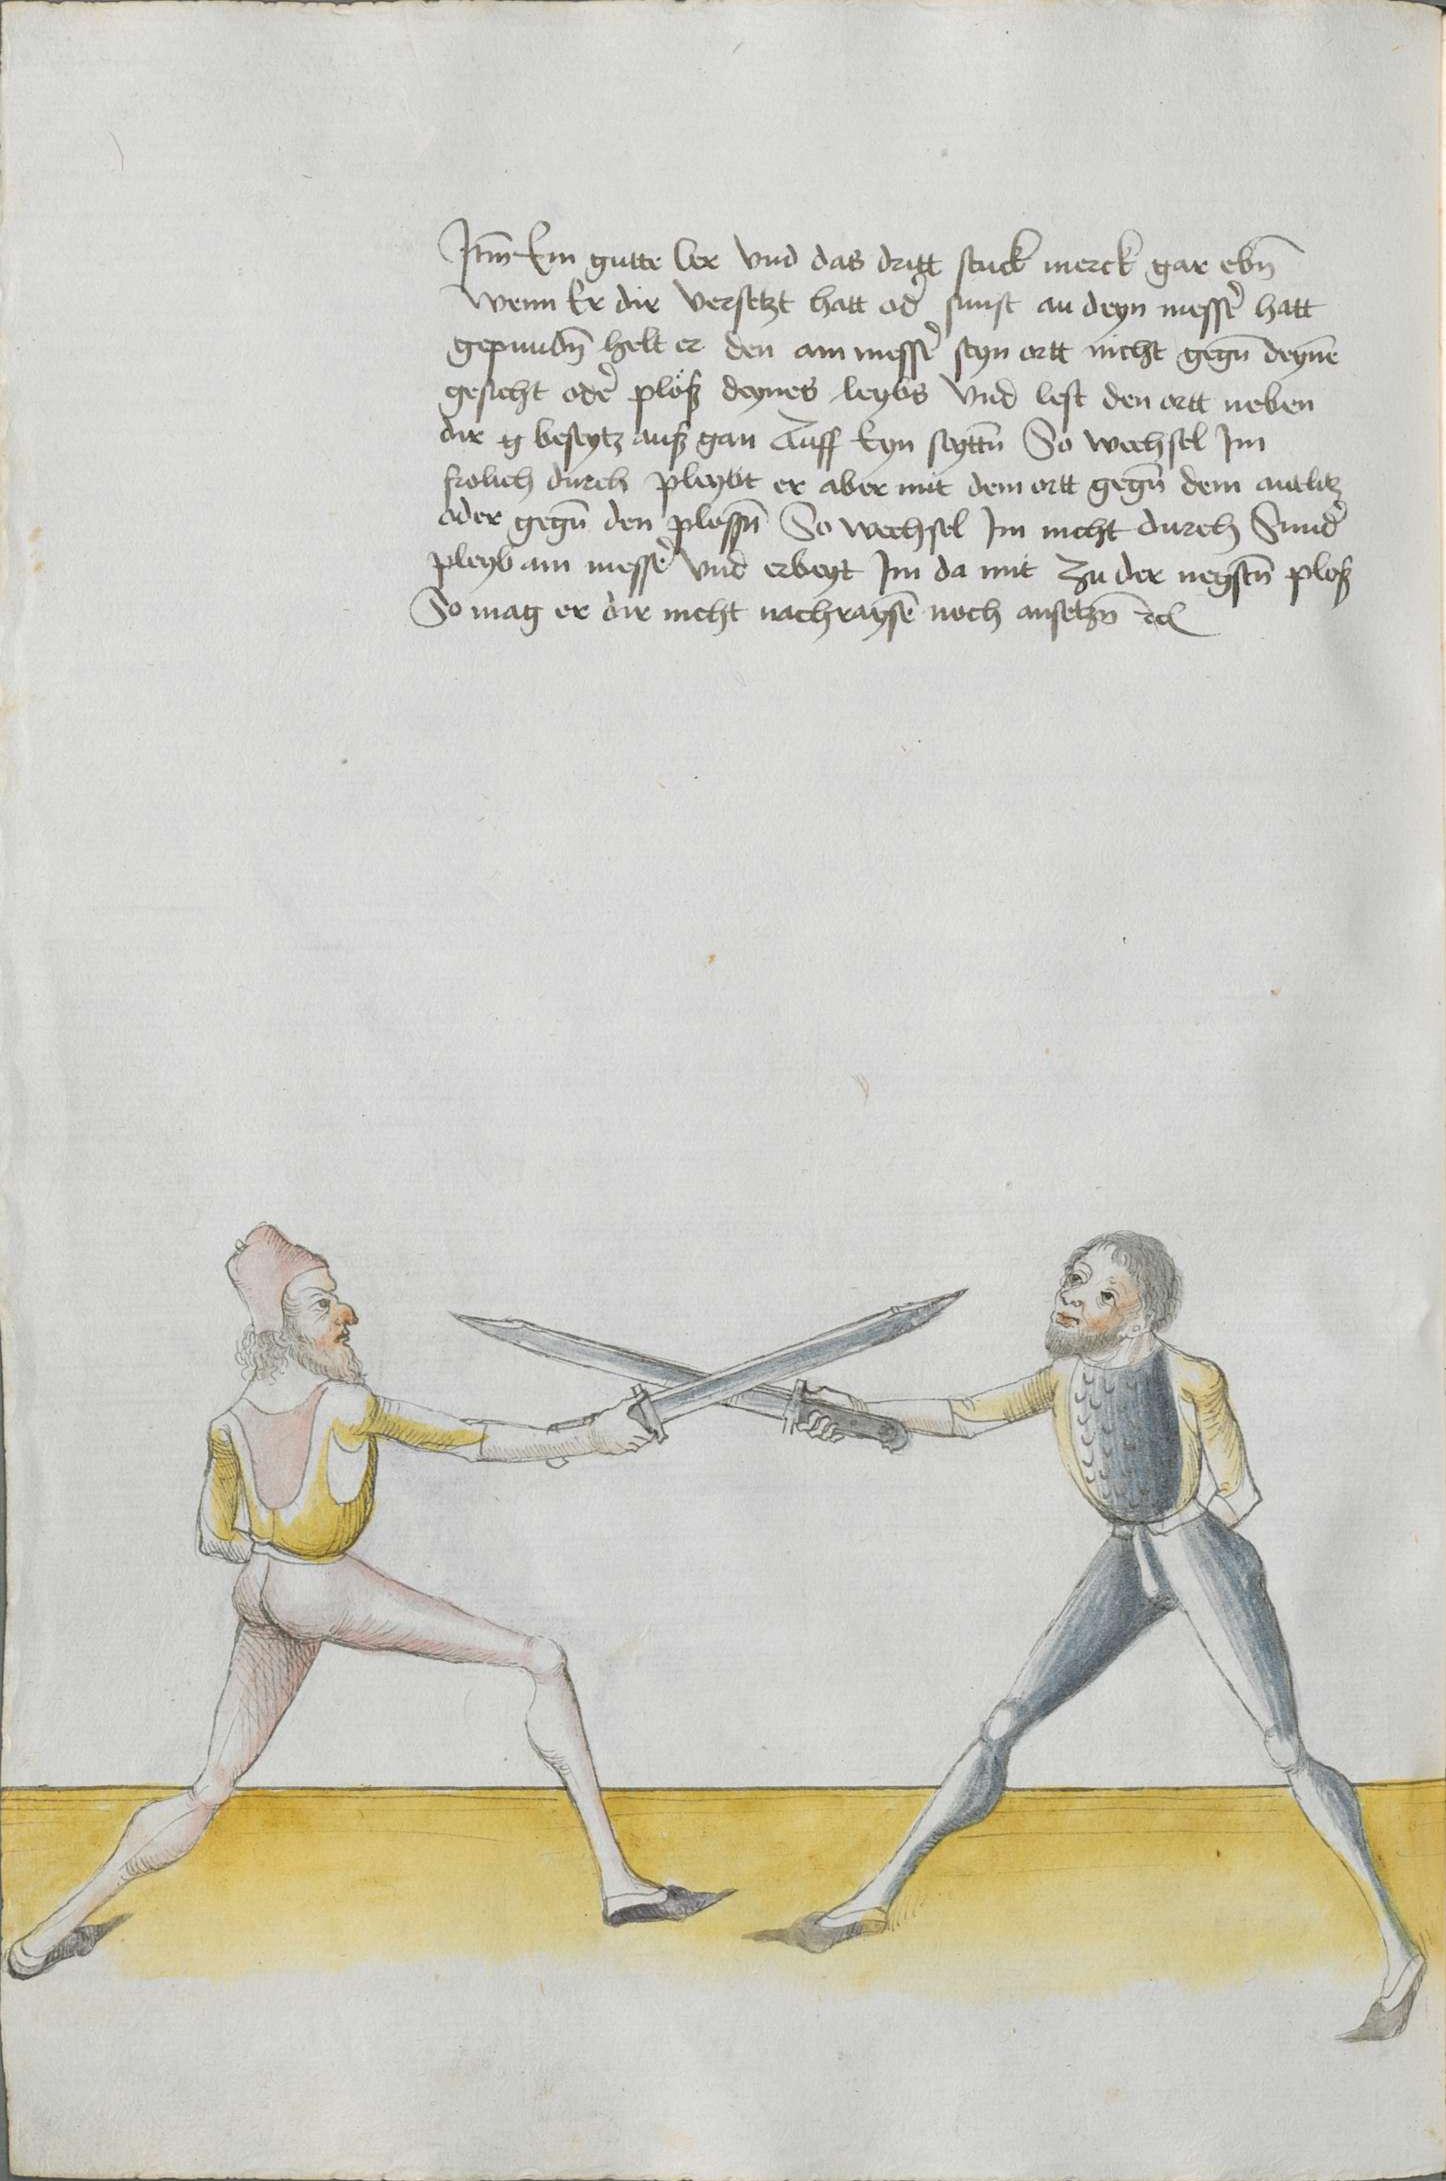 Itm̄ Ein gutte ler vnd das dritt stuck merck gar ebn̄
wenn Er dir versetzt hatt od̉ sunst an deyn mess̉ hatt
gepundn̄ helt er den am mess̉ seyn ortt nicht gegn̄ deynē
gesicht od̉ plöß deynes leybs vnd lest den ortt neben
dir beseytz auß gan Auff Eyn seyttn̄ So wechsel Im
frolich durch pleybt er aber mit dem ortt gegn̄ dem antlitz
oder gegn̄ den plossn̄ So wechsel Im nicht durch Sund̉
pleyb am mess̉ vnd erbeyt Im da mit zu der negstn̄ ploß
So mag er dir nicht nachraysē noch ansetzn̄ ꝛcͣ